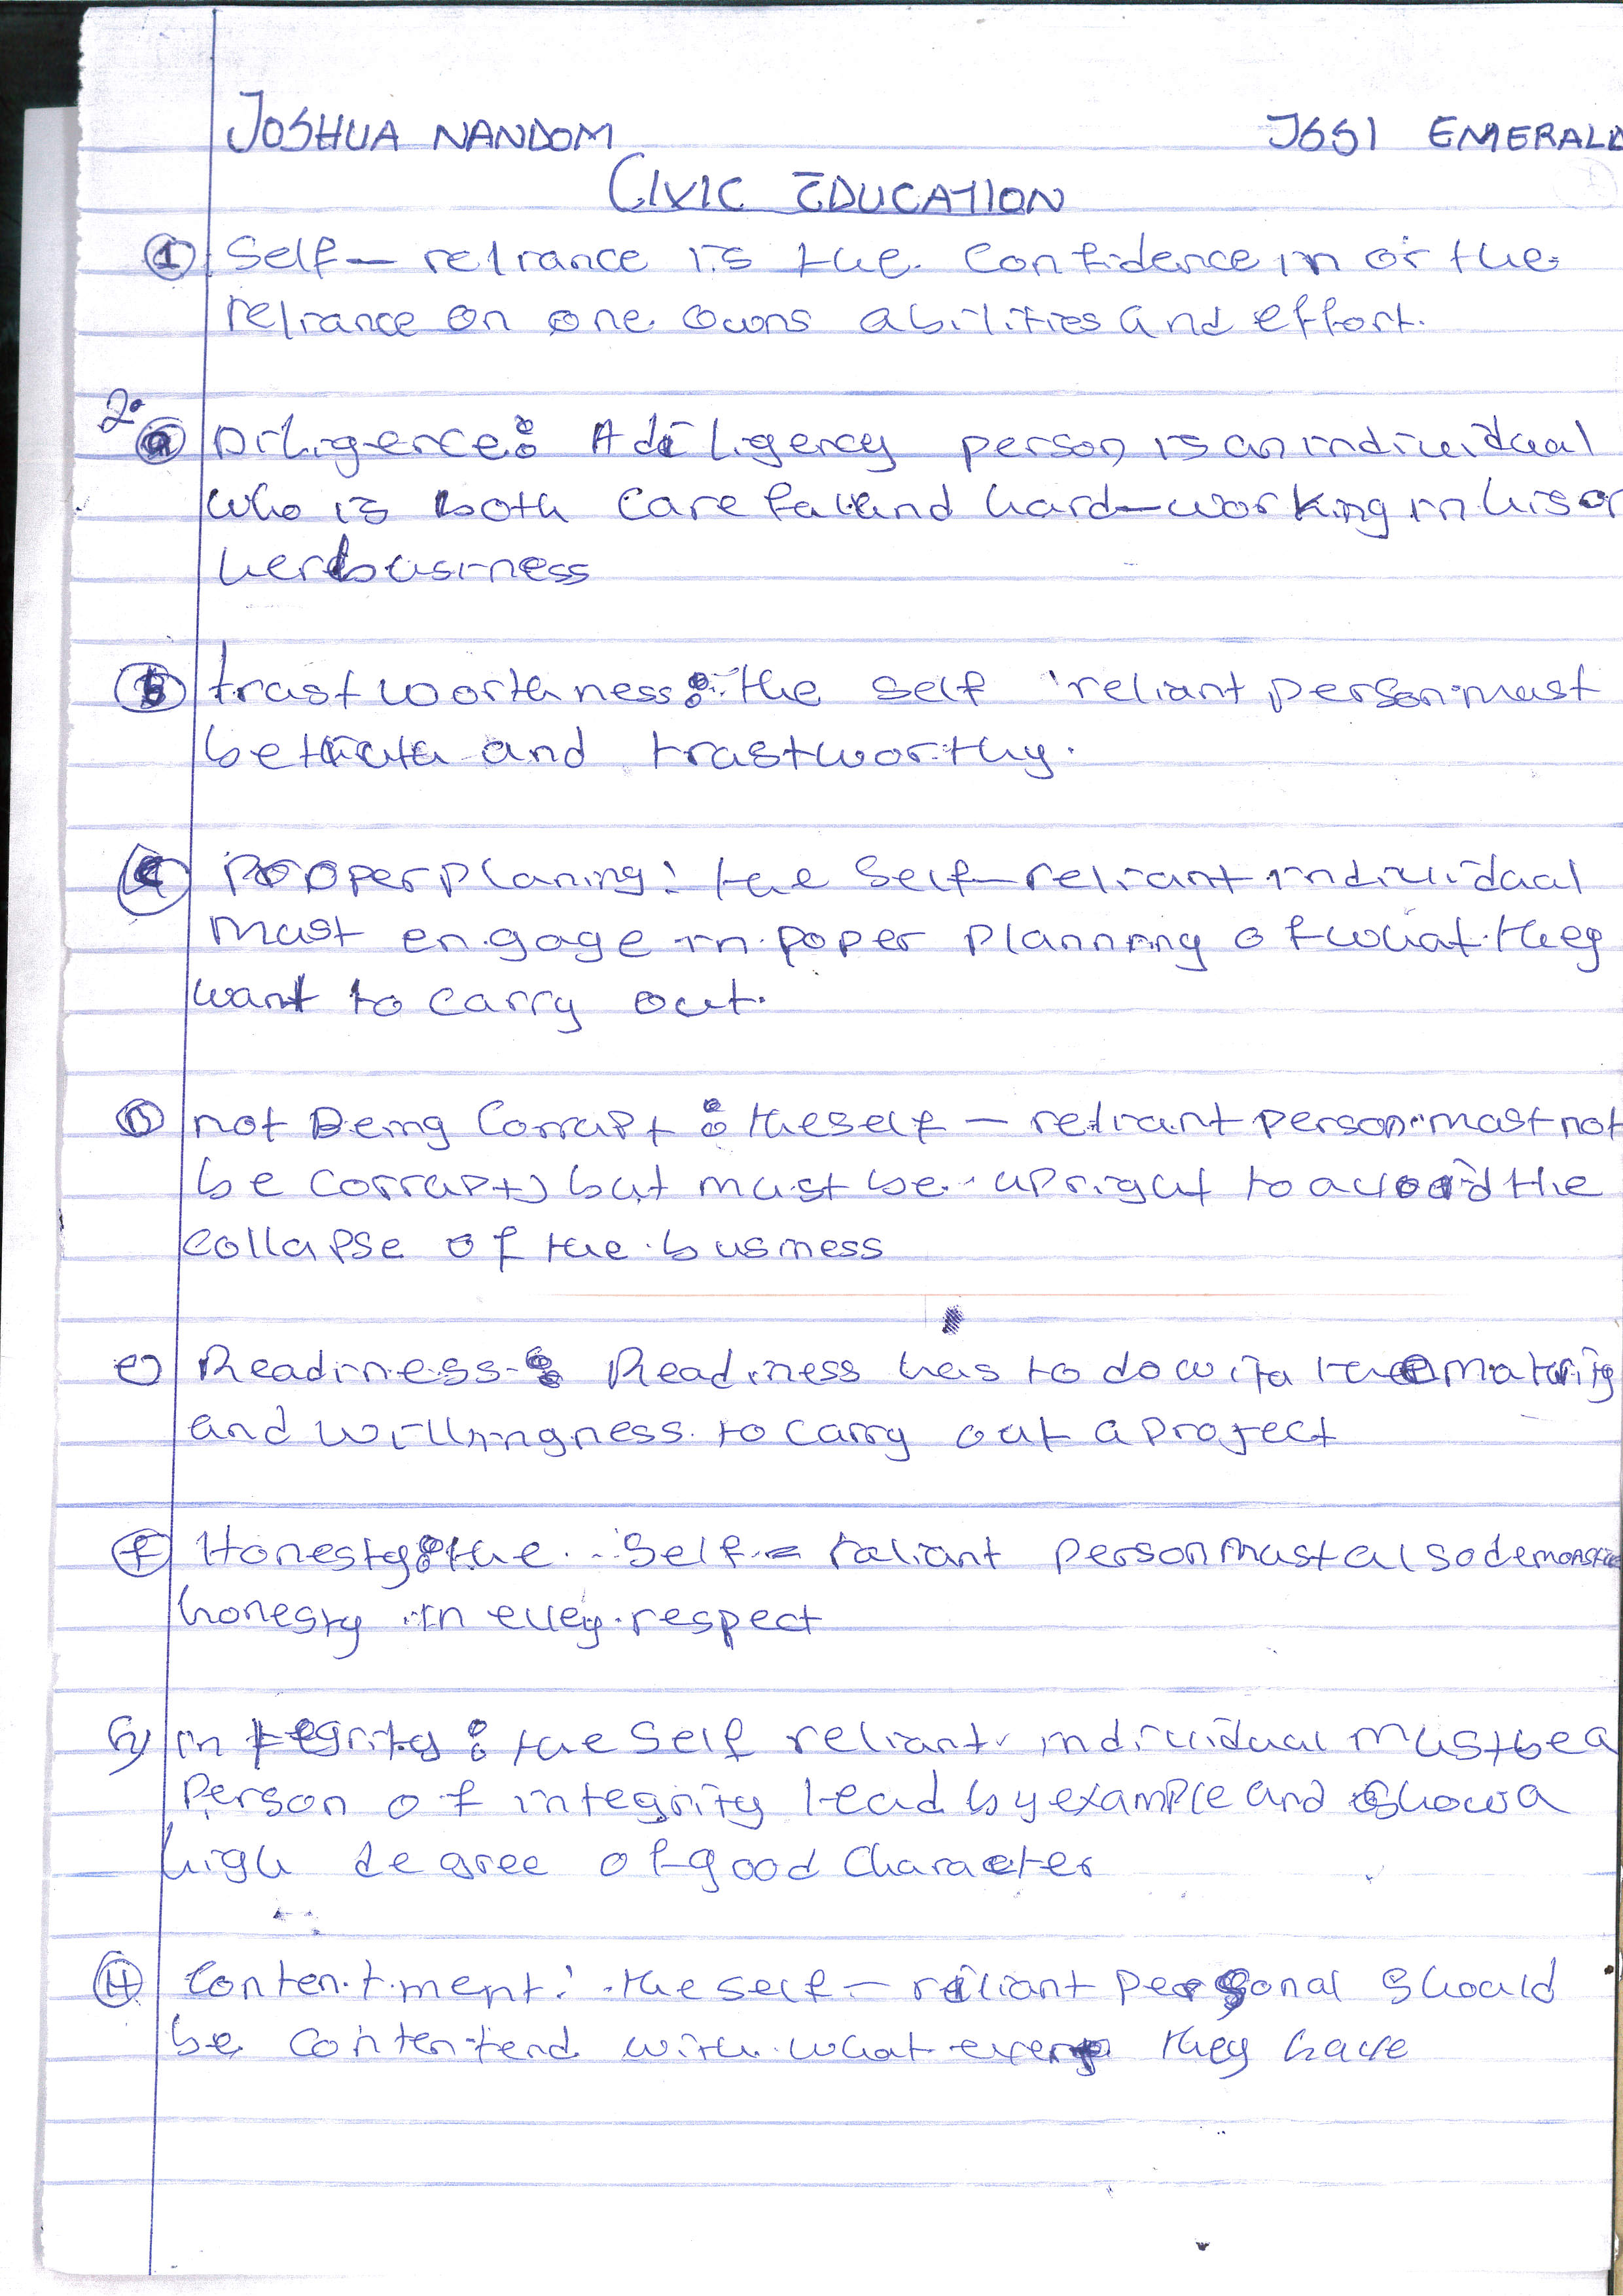 JOSHUA NANDOM JSS1 EMERALD
CIVIC EDUCATION
1 Self-reliance is the confidence in or the
reliance on one owns abilities and effort.
2. a Diligence: A diligency person is an individual
who is both carefull and hard-working in his or
her business
b trustworthness: the self reliant person must
be and trustworthy.
c Propper planing: the self-reliant individual
must engage in poper planning of what they
want to carry out.
D not Being Corrupt: the self-reliant person must not
be corrupt, but must be upright to avoid the
collapse of the business
e) Readiness: Readiness has to do with the
and willingness to carry out a project
f Honesty: the self-raliant person must also
honesty in every respect
G) integrity: the self reliant individual must be a
Person of integrity lead by example and show a
high degree of good Character
H Contentment: the self-reliant personal should
be contentend with what ever they have